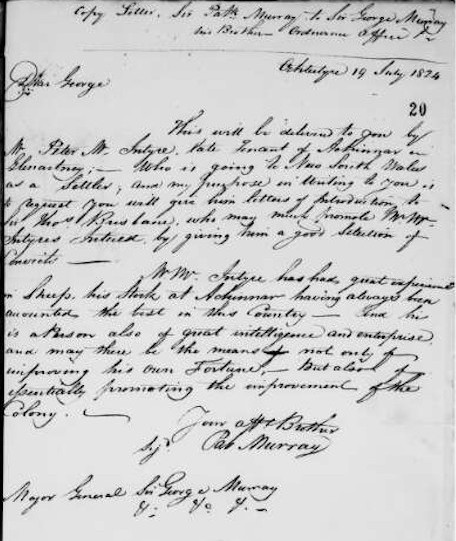 Copy Letter. Sir Patk Murray to Sir George Murray
his Brother - Ordnance Office &c
Ochtertyre 19 July 1824
Dear George
20
This will be deliverd to you by
Mr. Peter Mc. Intyre, late Tenant of Achinnar in
Glenartney; - Who is going to New South Wales
as a Settler; and my purpose in Writing to You is
to request You will give him letters of Introduction to
Sir Thos. Brisbane, who may much promote Mr Mc
Intyres Interest, by giving him a good Selection of
Convicts -
Mr. Mc. Intyre has had great experience
in Sheep, his Stock at Achinnar having always been
accounted the best in this Country - And he
is a Person also of great intelligence and enterprise,
and may there be the means not only of
improving his own Fortune, - But also of
essentially promoting the improvement of the
Colony. -
Your afft Brother
Pat Murray
Major General Sir George Murray
&c. &c. &c. -